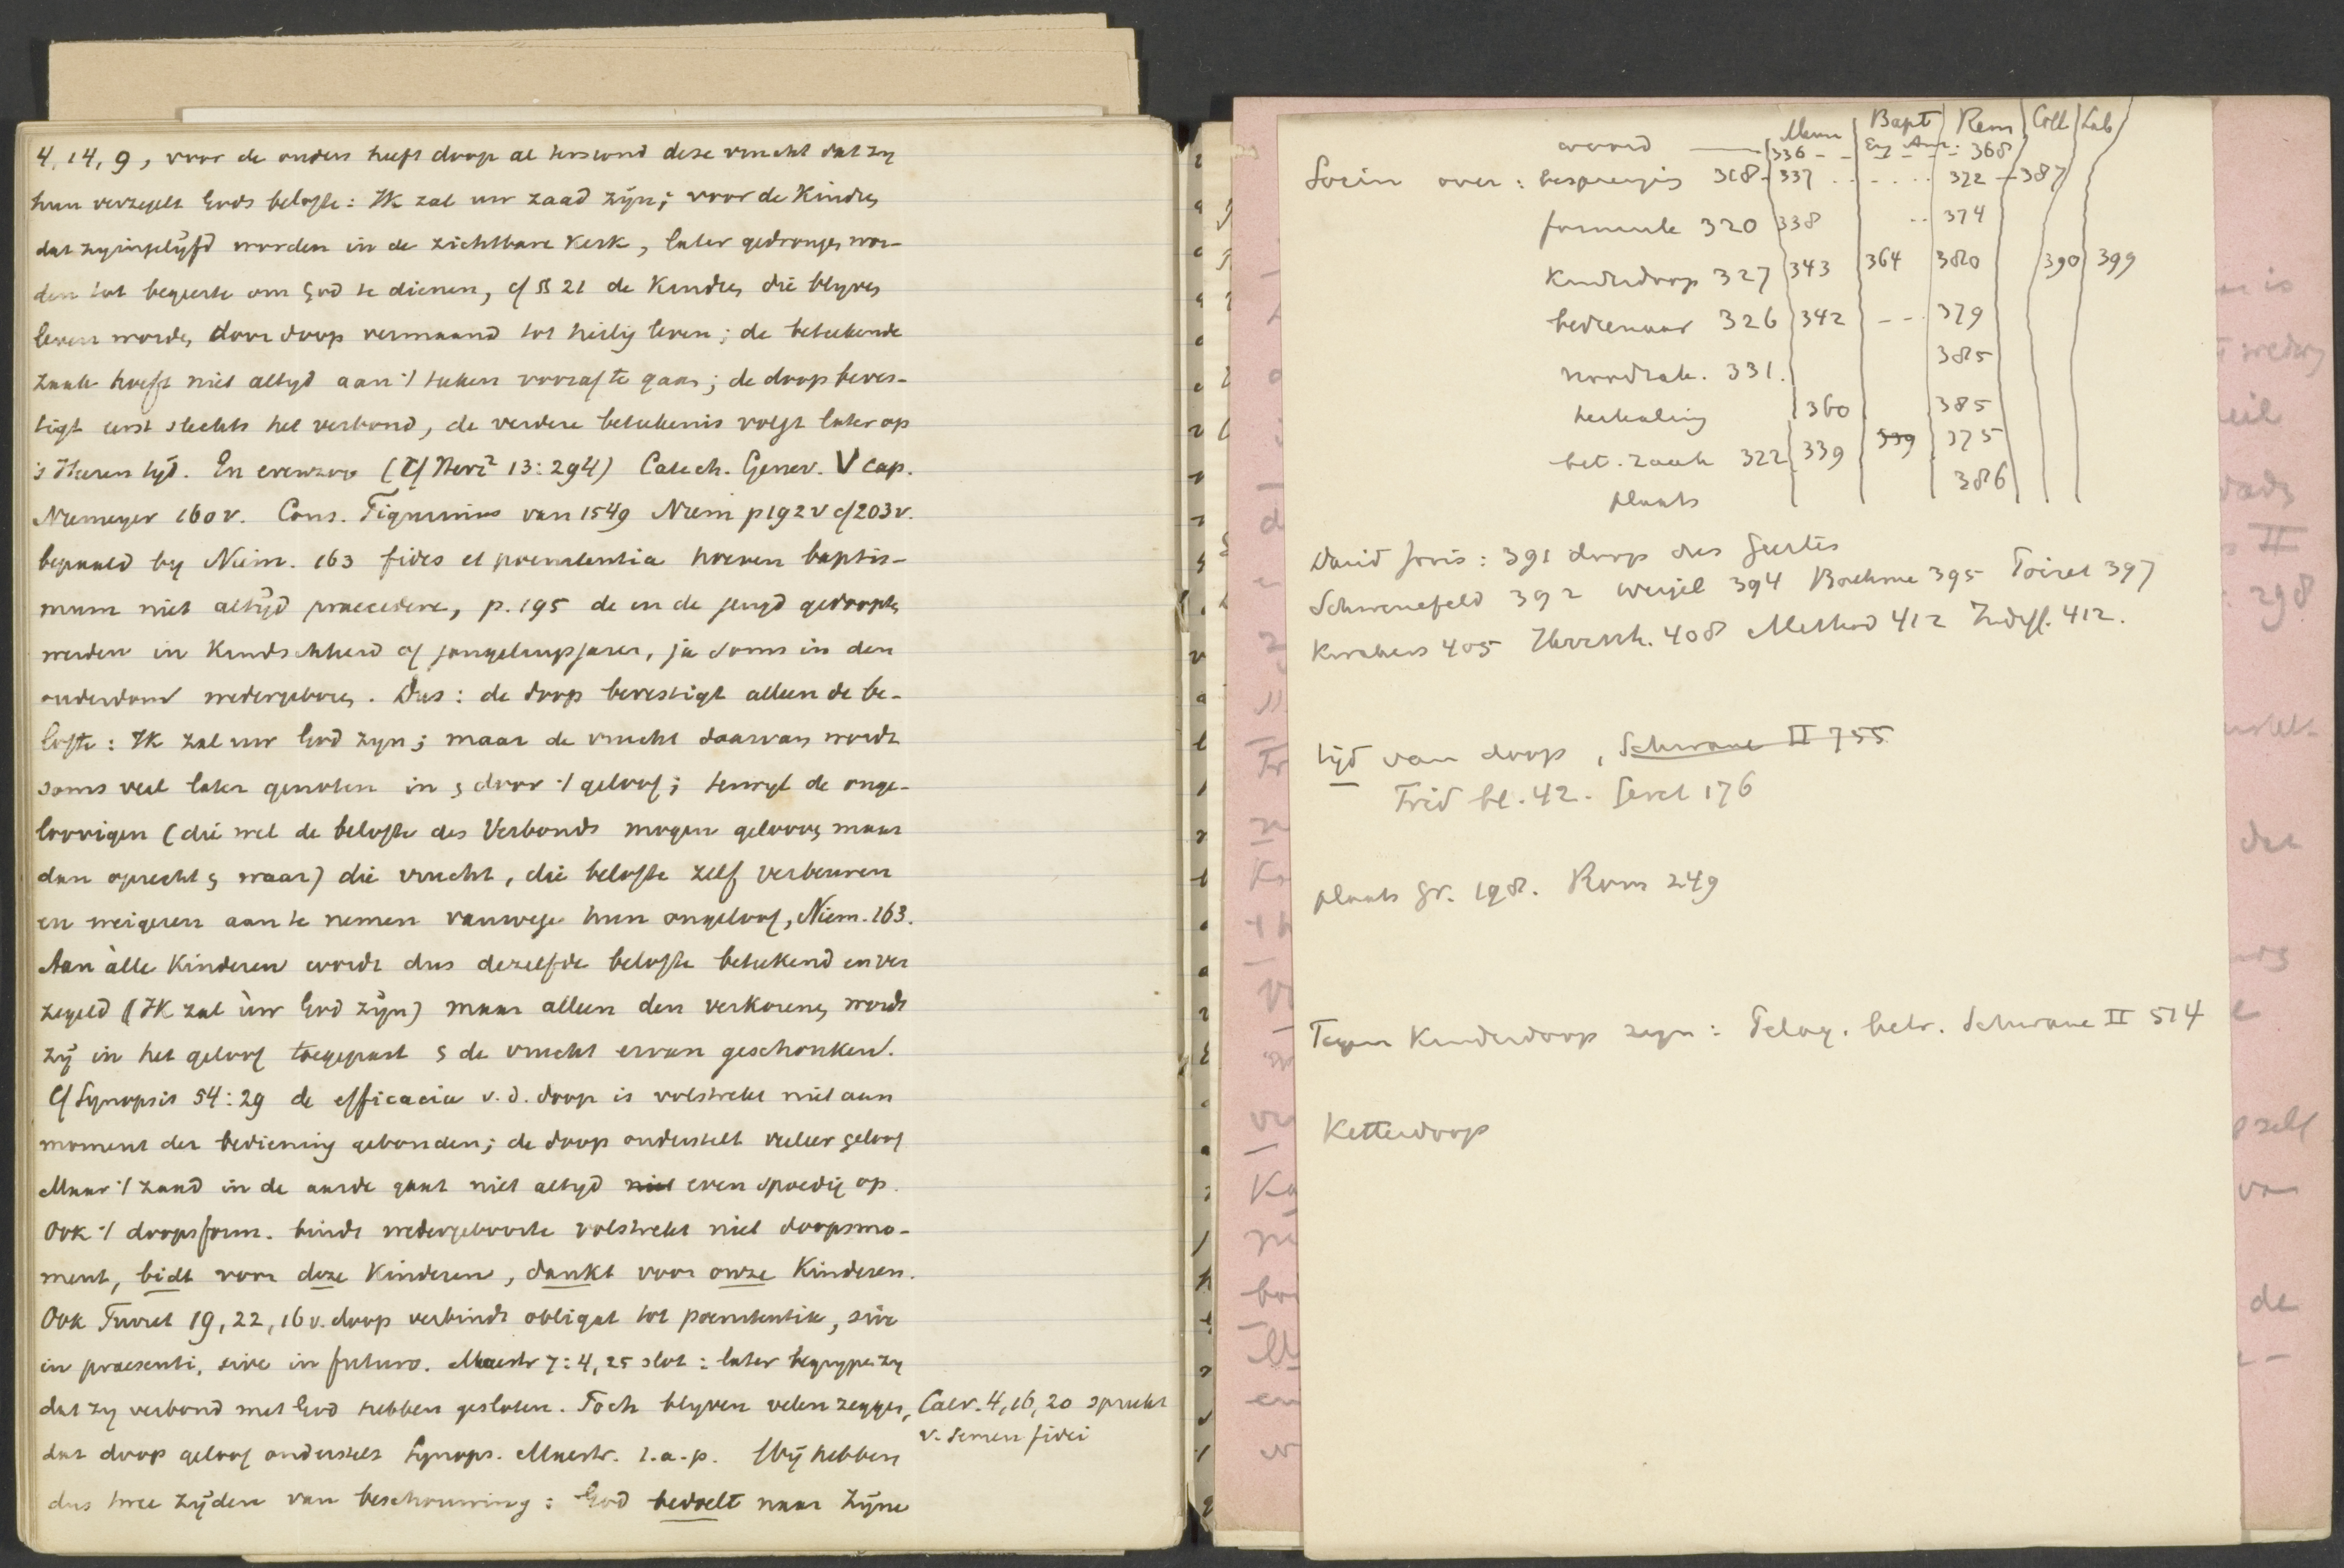 4, 14, 9, voor de ouders heeft doop al terstond deze vrucht dat zy
hun verzegelt Gods belofte: Ik zal uw zaad zijn; voor de Kindren
dat zy ingelijfd worden in de zichtbare Kerk, later gedrongen wor-
den tot begeerte om God te dienen, cf § 21 de Kindren die blyven
leven worden door doop vermaand tot heilig leven; de beteekende
zaak hoeft niet altyd aan 't teken vooraf te gaan; de doop beves-
tigt eerst slechts het verbond, de verdere betekenis volgt later op
's Heeren tijd. En evenzoo (Cf Heri² 13:294) Catech. Genev. V cap.
Niemeyer 160 v. Cons. Tigurinus van 1549 Niem p 192 v cf 203 v.
bepaald by Niem. 163 fides et poenitentia hoeven baptis-
mum niet altijd praecedere, p. 195 de in de jeugd gedoopten
werden in Kindschheid of jongelingsjaren, ja soms in den
ouderdom wedergeboren. Dus: de doop bevestigt alleen de be-
lofte: Ik zal uw God zyn; maar de vrucht daarvan wordt
soms veel later genoten in & door 't geloof; terwyl de onge-
loovigen (die wel de belofte des Verbonds mogen gelooven maar
dan oprecht & waar) die vrucht, die belofte zelf verbeuren
en weigeren aan te nemen vanwege hun ongeloof, Niem. 163.
Aan àlle Kinderen wordt dus dezelfde belofte beteekend en ver
zegeld (Ik zal ùw God zijn) maar alleen den verkorenen wordt
zij in het geloof toegepast & de vrucht ervan geschonken.
Cf Synopsis 54:29 de efficacia v.d. doop is volstrekt niet aan
moment der bediening gebonden; de doop onderstelt veeleer geloof
Maar 't zaad in de aarde gaat niet altyd niet even spoedig op.
Ook 't doopsform. bindt wedergeboorte volstrekt niet doopsmo-
ment, bidt voor deze Kinderen, dankt voor onze Kinderen.
Ook Turret 19, 22, 16 v. doop verbindt obligat tot poenitentie, sive
in praesenti, sive in futuro. Maestr 7:4, 25 slot: later begrypen zy
dat zy verbond met God hebben gesloten. Toch blyven velen zeggen,
Calv. 4, 16, 20 spreekt
v. semen fidei
dat doop geloof onderstelt Synops. Maestr. l.a.p. Wij hebben
dus twee zijden van beschouwing: God bedoelt naar Zijne
Menn | Bapt | Rem | Coll | Lab
woord 336 Eng Am: 368
Socin over: besprenging 318 337 372 387
formule 320 338 374
Kinderdoop 327 343 364 380 390 399
bedienaar 326 342 379
noodzak. 331. 385
herhaling 360 385
bet. zaak 322 339 339 375
plaats 386
David Joris: 391 doop des Geestes
Schwenefeld 392 Weigel 394 Boehme 395 Poiret 397
Kwakers 405 Hernh. 408 Method 412 Indiff. 412.
tijd van doop, Schwane II 755
Frid bl. 42. Geret 176
plaats Gr. 198. Rom 249
Tegen Kinderdoop zegn: Pelag. betr. Schwane II 514
Ketterdoop